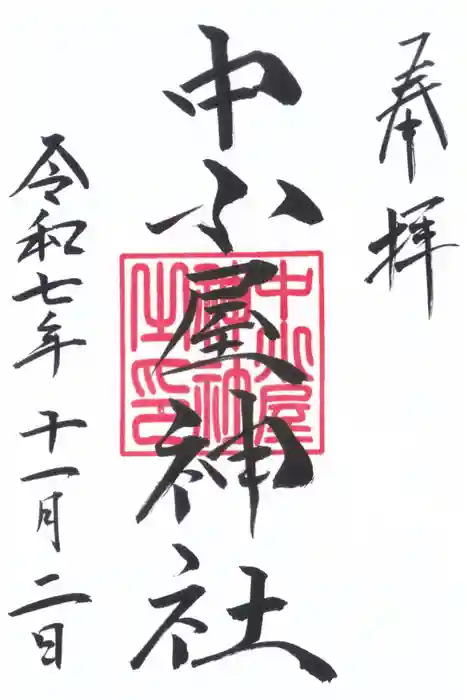 奉拝
中小屋神社
中小屋
神社
之印
令和七年十一月二日